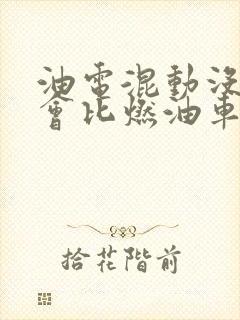 油電混動沒
會比燃油車
拾花階前